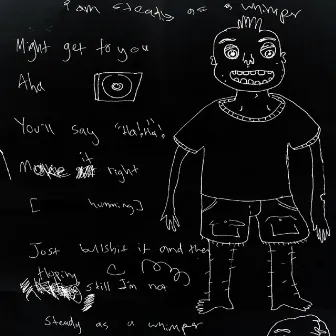 i am steady as a whimper
Might get to you
Aha
You'll say "Ha! Ha!"
Make it right
[ humming ]
Just bullshit it and then
Hoping still I'm not
Steady as a whimper